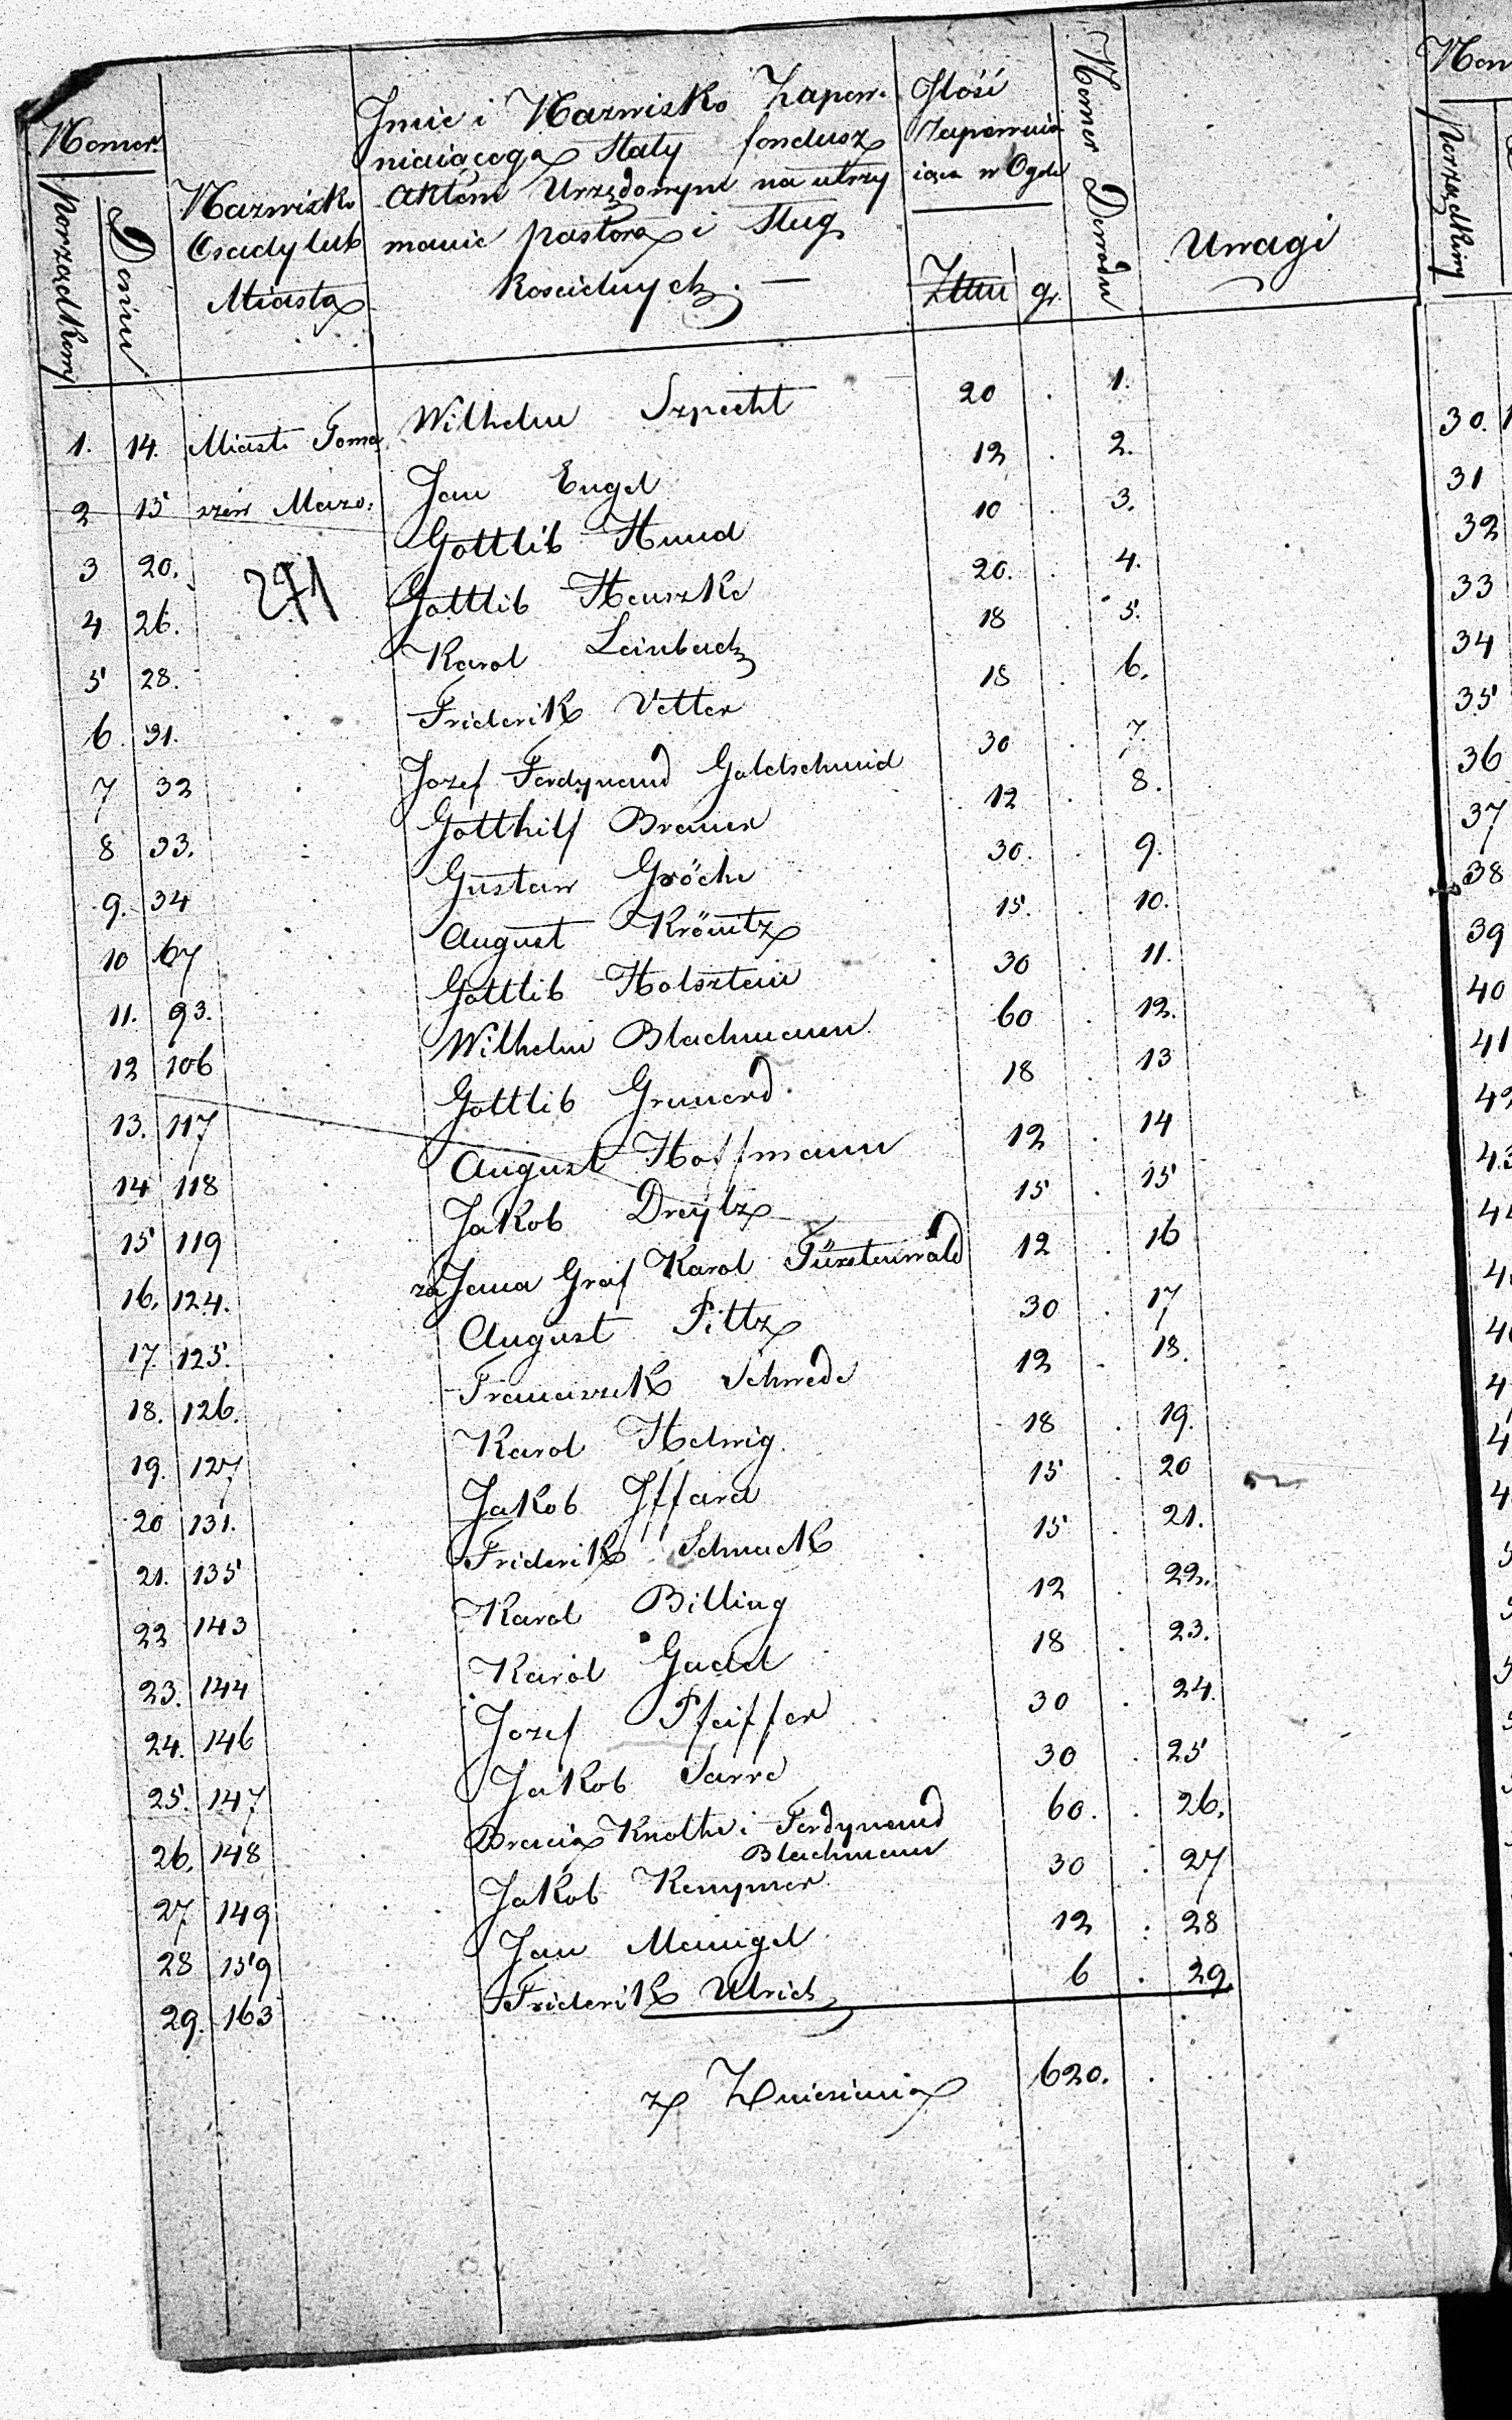 Nomer
porządkowy
Domu
Nazwisko
Osady lub
Miasta
Jmie i Nazwisko Zapew-
niaiącego Stały fondusz
Aktem Urzędowym na utrzy
manie pastora i Sług
Kościelnych. —
Jlość
Zapewnia
iąca w Ogole
Złtu gr.
Nomer Dowodu
Uwagi
1. 14. Miasto Toma Wilhelm Szpecht 20 . 1.
2 15 szów Mazo: Jan Engel 12 . 2.
3 20. Gottlib Hund 10 . 3.
271
4 26. Gottlib Henszke 20. . 4.
5 28. Karol Leinbach 18 . 5.
6. 31. Friderik Vetter 18 . 6.
7 32 Jozef Ferdynand Goldschmid 30 . 7.
8 33. Gotthilf Brauer 12 . 8.
9. 34 Gustaw Gröche 30. . 9.
10 67 August Krönitz 15. . 10.
11. 93. Gottlib Holsztein 30 . 11.
12 106 Wilhelm Blachmann 60 . 12.
13. 117 Gottlib Grunerd 18 . 13
14 118 August Hoffmann 12 . 14
15 119 Jakob Dreytz 15 . 15
16. 124. za Jana Graf Karol Fürstenwald 12 . 16
17. 125. August Pittz 30 . 17
18. 126. Franciszek Schwede 12 . 18.
19. 127 Karol Helwig 18 . 19.
20 131. Jakob Jffard 15 . 20
21. 135 Friderik Schmuck 15 . 21.
22 143 Karol Billing 12 . 22.
23. 144 Karol Gadel 18 . 23.
24. 146 Jozef Pfeiffer 30 . 24.
25. 147 Jakob Sarre 30 . 25
26. 148 Bracia Knothe i Ferdynand 60. . 26.
Blachmann
27 149 Jakob Kempner 30 . 27
28 159 Jan Meinigel 12 . 28
29. 163 Friderik Ulrich 6 . 29.
z Zniesienia 620. .
porządkowy
30.
31
32
33
34
35
36
37
38
39
40
41